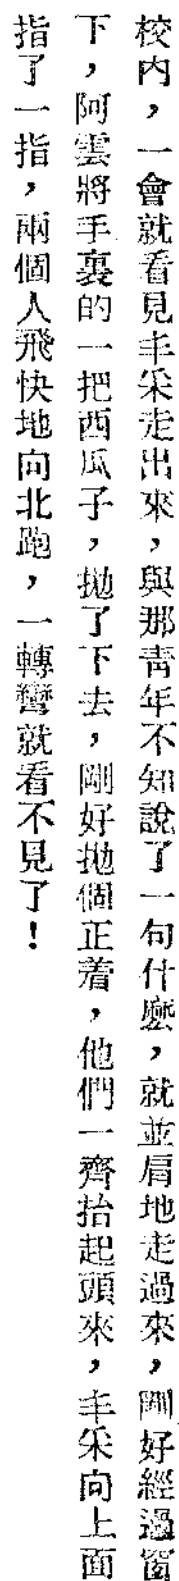 校內，一會就看見丰采走出來，與那靑年不知說了一句什麽，就並肩地走過來，剛好經過窗
下，阿雲將手裏的一把西瓜子，拋了下去，剛好拋個正着，他們一齊抬起頭來，丰采向上面
指了一指，兩個人飛快地向北跑，一轉彎就看不見了！